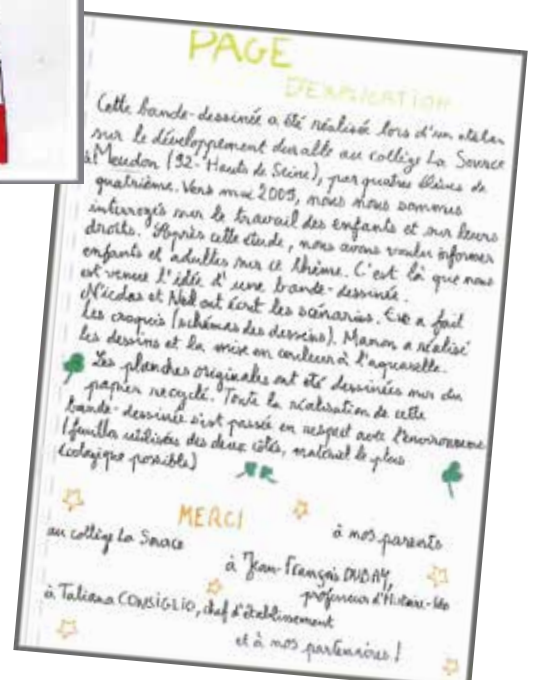 PAGE
D'EXPLICATION
Cette bande-dessinée a été réalisée lors d'un atelier
sur le développement durable au collège La Source
à Meudon (92- Hauts de Seine), par quatres élèves de
quatrième. Vers mai 2009, nous nous sommes
interrogés sur le travail des enfants et sur leurs
droits. Après cette étude, nous avons voulu informer
enfants et adultes sur ce thème. C'est là que nous
est venue l'idée d'une bande-dessinée.
Nicolas et Ned ont écrit les scénarios. Eve a fait
les croquis (schémas des dessins). Manon a réalisé
les dessins et la mise en couleur à l'aquarelle.
Les planches originales ont été dessinées sur du
papier recyclé. Toute la réalisation de cette
bande-dessinée s'est passée en respect avec l'environneme
(feuilles utilisées des deux côtés, matériel le plus
écologique possible)
MERCI
à nos parents
au collège La Source
à Jean-François DUBAY,
professeur d'Histoire-Géo
à Tatiana CONSIGLIO, chef d'établissement
et à nos partenaires !